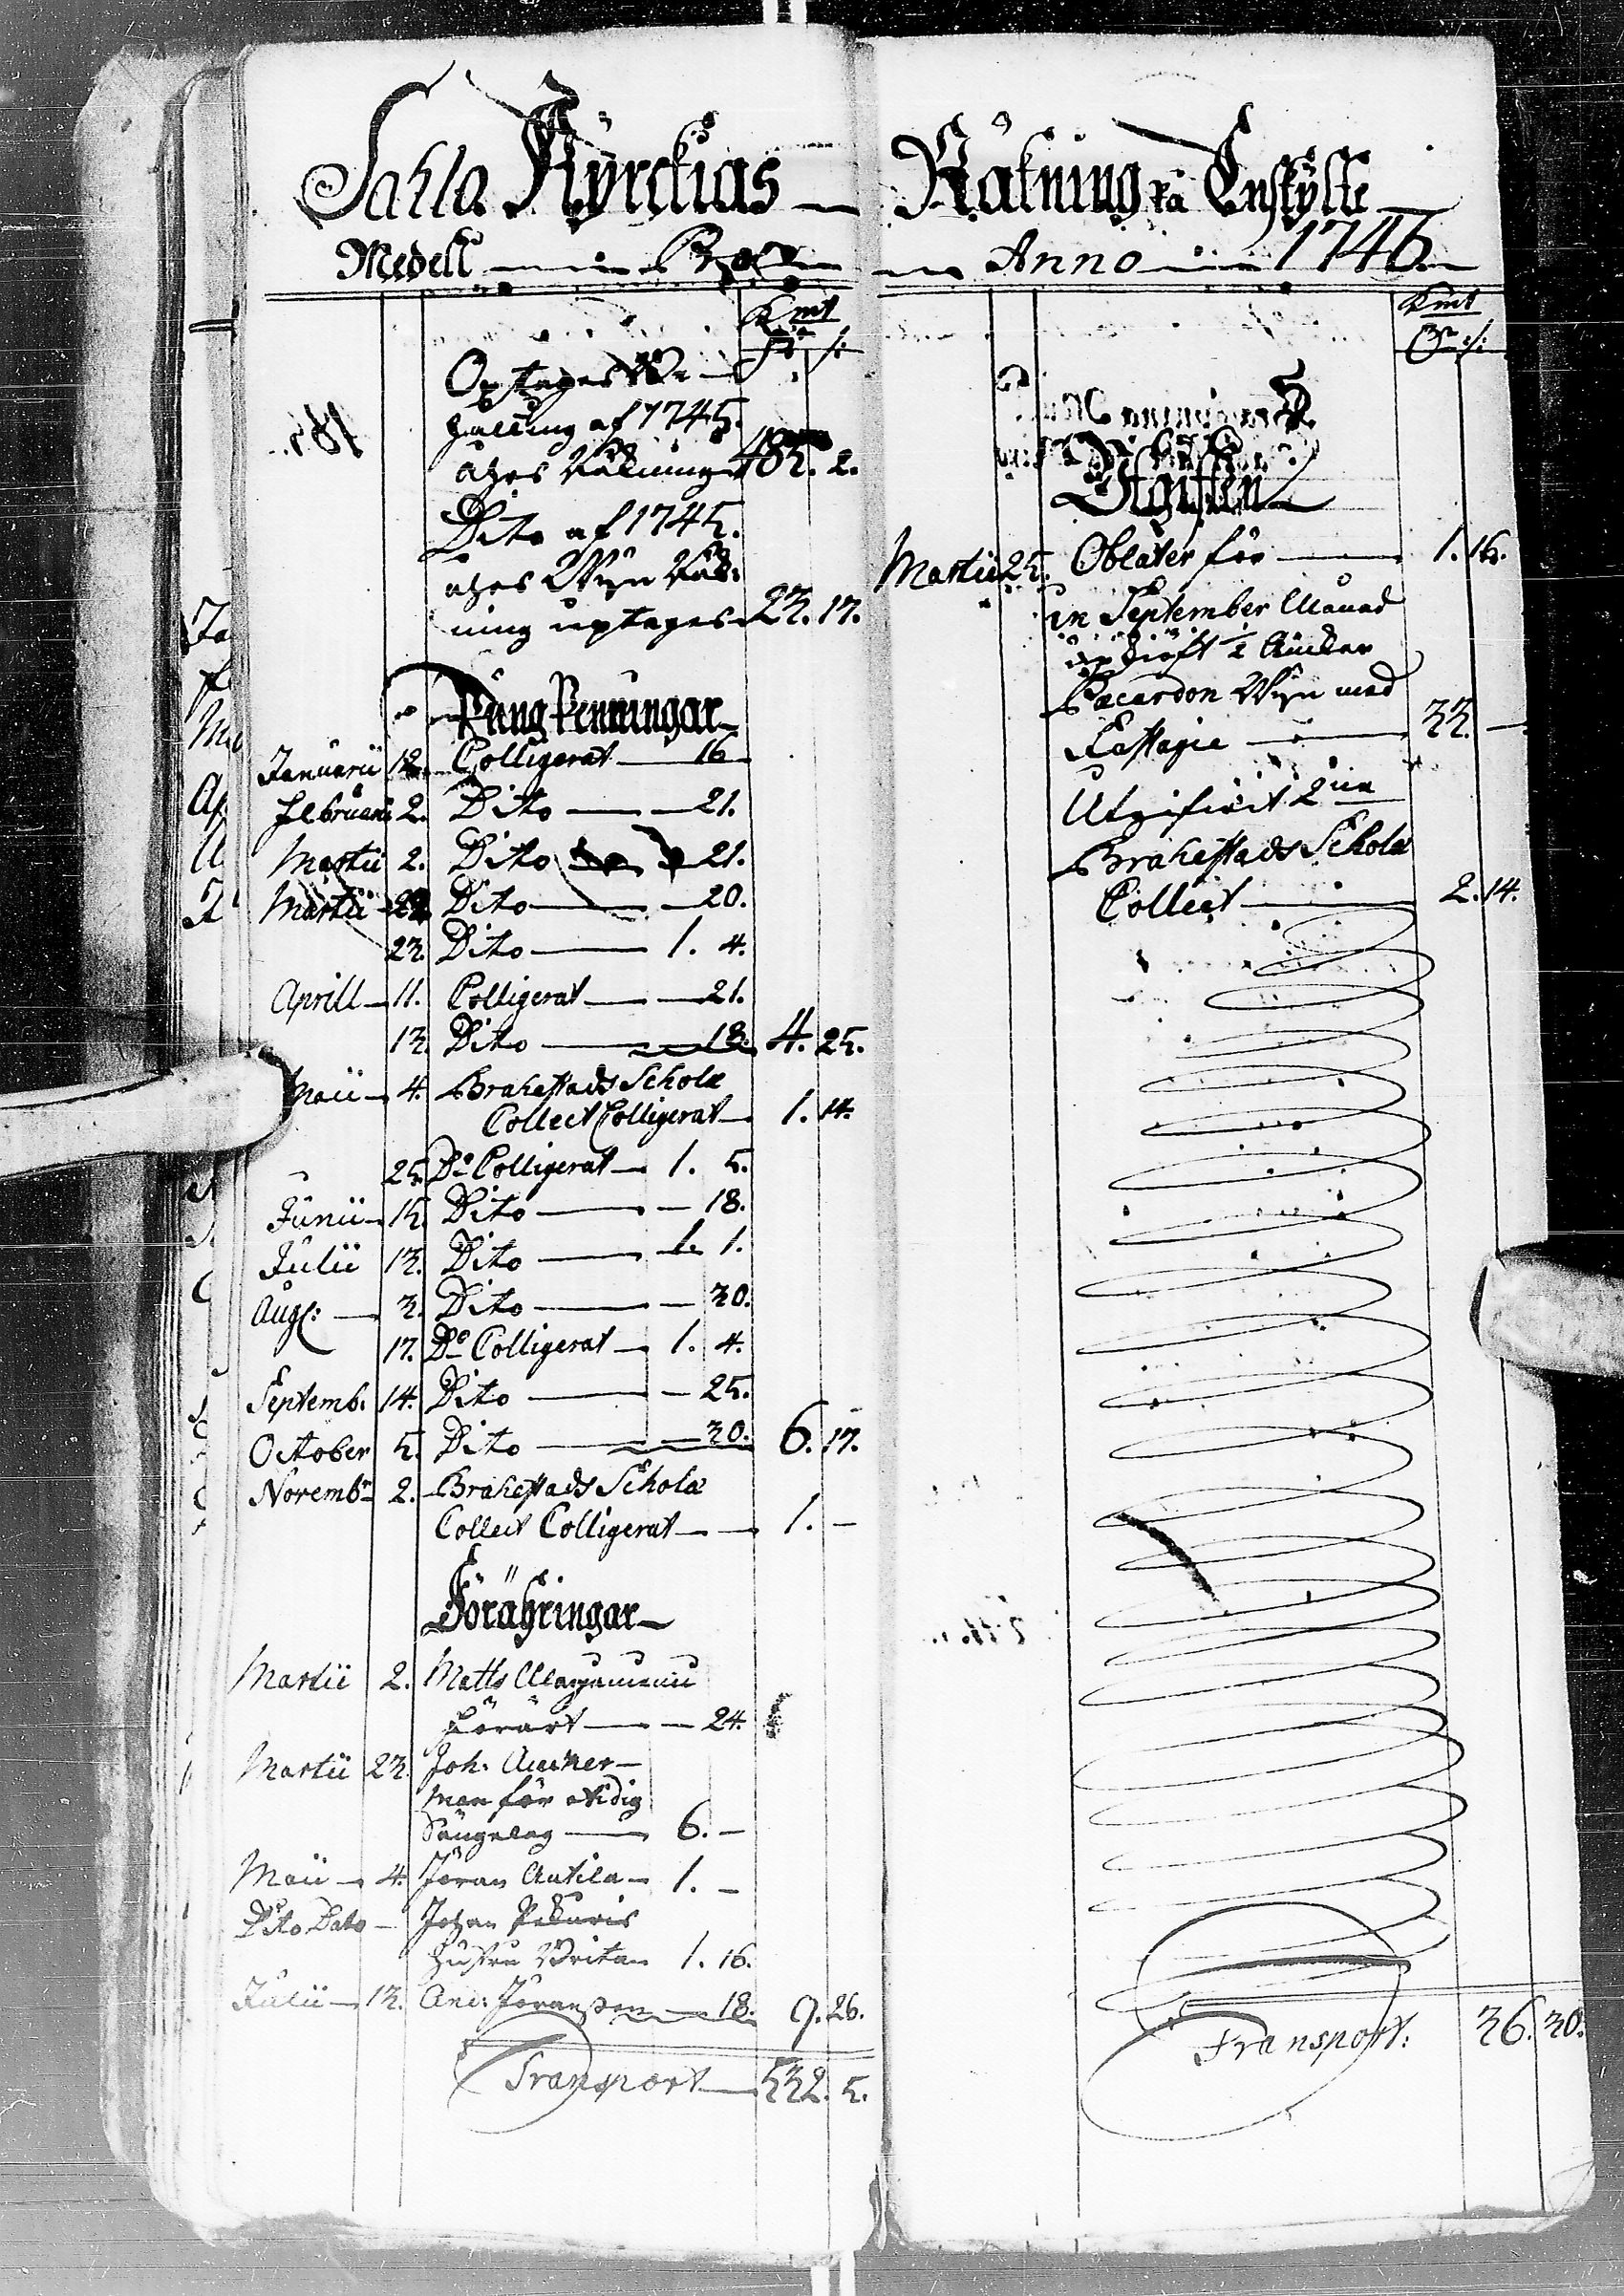 Sahla Kyrckias — Räkning på Enskylte
Medell — Anno — 1746
Kmt
Kmt
Optages Be-
hålling af 1745.
ahrs Räkning 485. 2.
Dito af 1745.
ahrs Wijn Räk-
ning uptages 23. 17.
Pung Penningar
Januarii 12. Colligerat — 16
februarii 2. Dito — 21.
Martii 2. Dito — 21.
Martii 22 Dito — 20.
23. Dito — 1. 4.
Aprill 11. Colligerat — 21.
13. Dito — 18. 4. 25.
Maii 4. Brahestads Scholæ
Collect Colligerat 1. 14.
25. Do Colligerat 1. 5.
Junii 15. Dito — 18.
Julii 13. Dito — 1. 1.
Aug: 3. Dito — 30.
17. Do Colligerat 1. 4.
Septemb. 14. Dito — 25.
October 5. Dito — 30. 6. 17.
Novembr 2. Brahestads Scholæ
Collect Colligerat 1. —
Förähringar
Martii 2. Matts
förärt — 24.
Martii 23. Joh.
man för
6. —
Maii 4. Jöran Antila 1. —
Dito Dato — Johan
hustru Brita 1. 16.
Julii 13. And: Joransson 18. 9. 26.
Transport 532. 5.
Utgifften
Martii 25. Oblater för — 1. 16.
in September Månad
upkiöft ½ Ancker
Pacardon Wijn med
Fastagie — 33. —
Utgifwit 2ne
Brahestads Scholæ
Collect — 2. 14.
Transport: 36. 30.